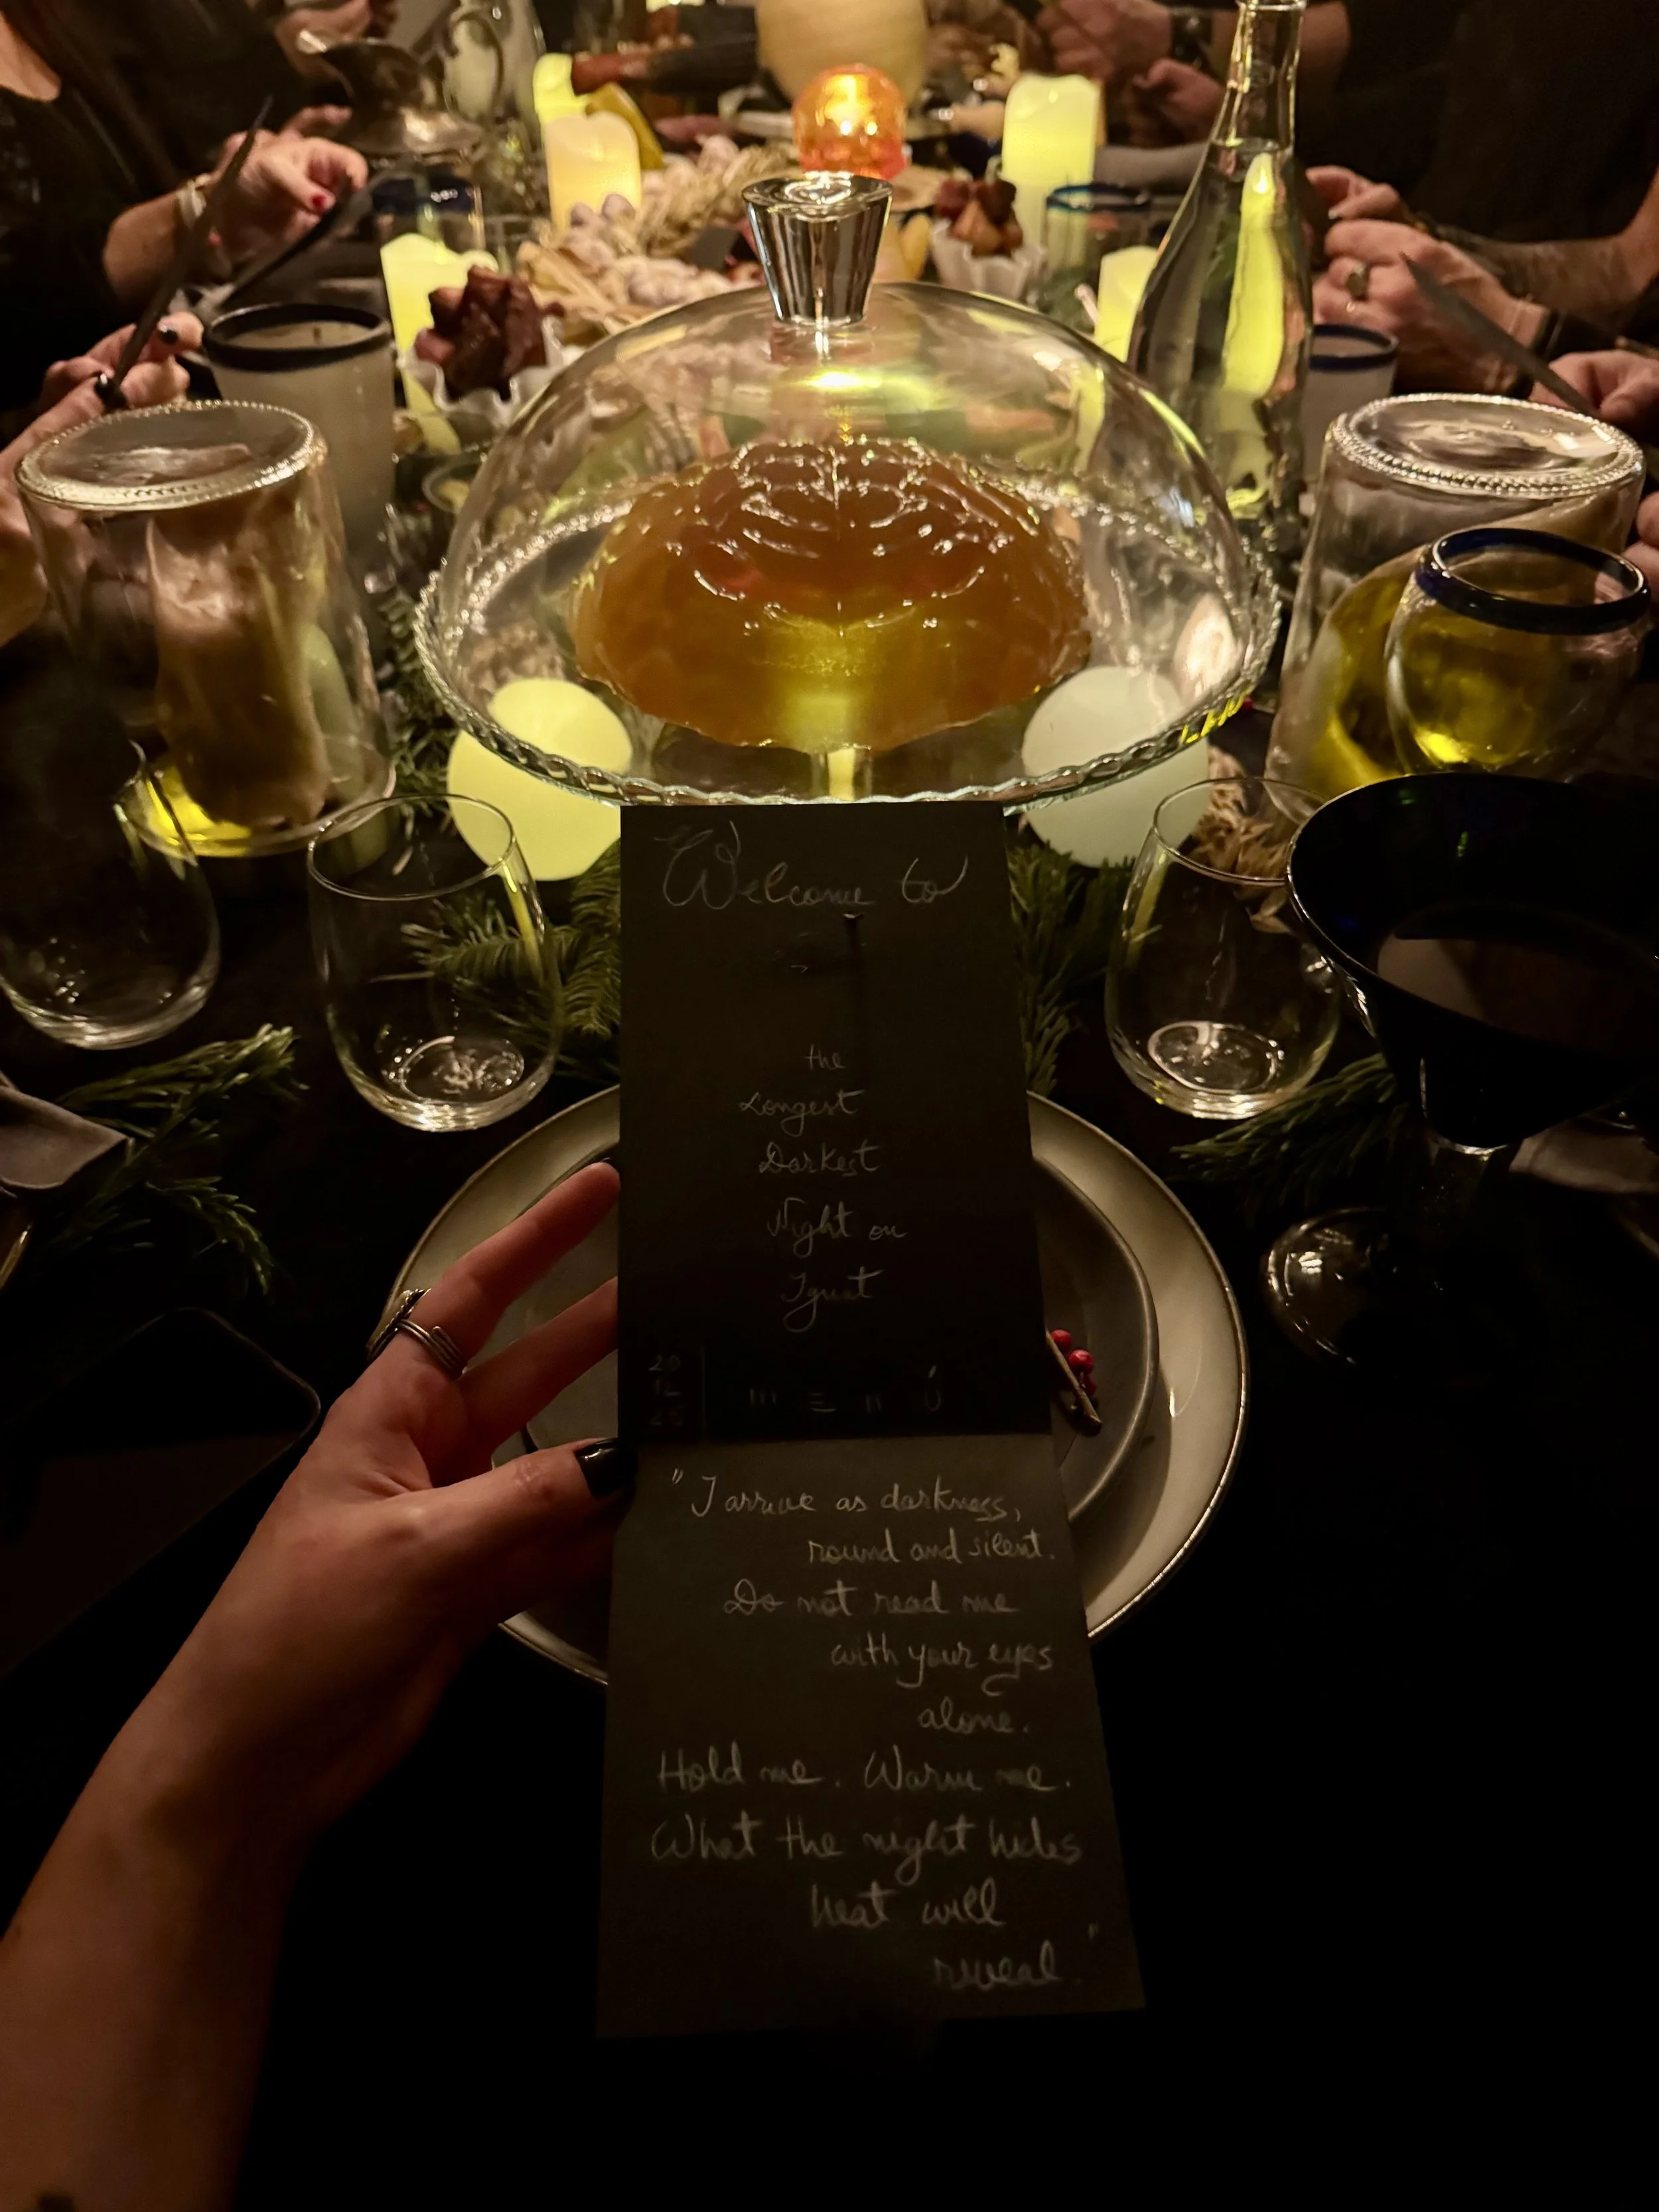 Welcome to
the
Longest
Darkest
Night on
Ignat
20
12
25
m e n ú
"I arrive as darkness,
round and silent.
Do not read me
with your eyes
alone.
Hold me. Warm me.
What the night hides
heat will
reveal."